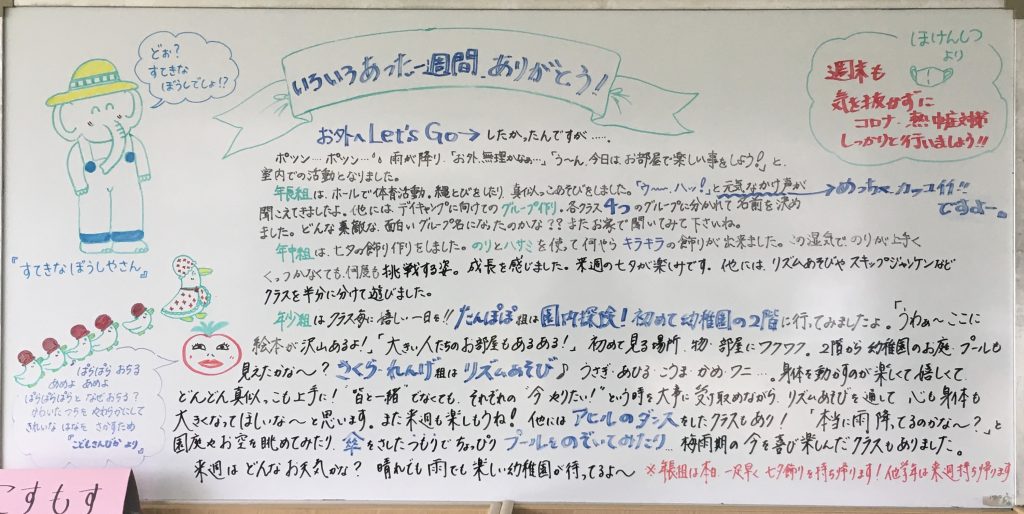 どぉ?
すてきな
ぼうしでしょ!?
『すてきなぼうしやさん』
いろいろあった一週間 ありがとう!
ほけんしつ
より
週末も
気を抜かずに
コロナ・熱中症対策
しっかりと行いましょう!!
お外へ Let's Go→ したかったんですが……
ポッツン…ポッツン…。雨が降り、「お外、無理かなぁ…」「う〜ん、今日は、お部屋で楽しい事をしよう!」と、
室内での活動となりました。
年長組は、ホールで体育活動。縄とびをしたり、真似っこあそびをしました。「ウーハッ!」と元気なかけ声が → めっちゃ カッコイイ!!
聞こえてきましたよ。他には、デイキャンプに向けてのグループ作り。各クラス4つのグループに分かれて名前を決め ですよー。
ました。どんな素敵な、面白いグループ名になったのかな??またお家で聞いてみて下さいね。
年中組は、七夕の飾り作りをしました。のりとハサミを使って何やらキラキラの飾りが出来ました。この湿気で、のりが上手く
くっつかなくても、何度も挑戦する姿。成長を感じました。来週の七夕が楽しみです。他には、リズムあそびやスキップジャンケンなど
クラスを半分に分けて遊びました。
年少組はクラス毎に嬉しい一日を!!たんぽぽ組は園内探険!初めて幼稚園の2階に行ってみましたよ。「うわぁ〜ここに
絵本が沢山あるよ!」「大きい人たちのお部屋もあるある!」初めて見る場所・物・部屋にワクワク。2階から幼稚園のお庭・プールも
見えたかな〜?さくら・れんげ組はリズムあそび♪うさぎ・あひる・こうま・かめ・ワニ…。身体を動かすのが楽しくて嬉しくて、
どんどん真似っこも上手に!"皆と一緒"でなくても、それぞれの"今やりたい!"という時を大事に受け取めながら、リズムあそびを通して心も身体も
大きくなってほしいな〜と思います。また来週も楽しもうね!他にはアヒルのダンスをしたクラスもあり!「本当に雨、降ってるのかな〜?」と
園庭やお空を眺めてみたり、傘をさしたつもりでちょっぴりプールをのぞいてみたり…梅雨期の今を喜び楽しんだクラスもありました。
来週はどんなお天気かな?晴れても雨でも楽しい幼稚園が待ってるよ〜 ※年長組は本日、一足早く七夕飾りを持ち帰ります!他学年は来週持ち帰ります
ぱらぱら おちる
あめよ あめよ
ぱらぱらぱらと なぜおちる?
かわいたつちを やわらかにして
きれいな はなを さかすため
『こどもさんびか より』
こすもす